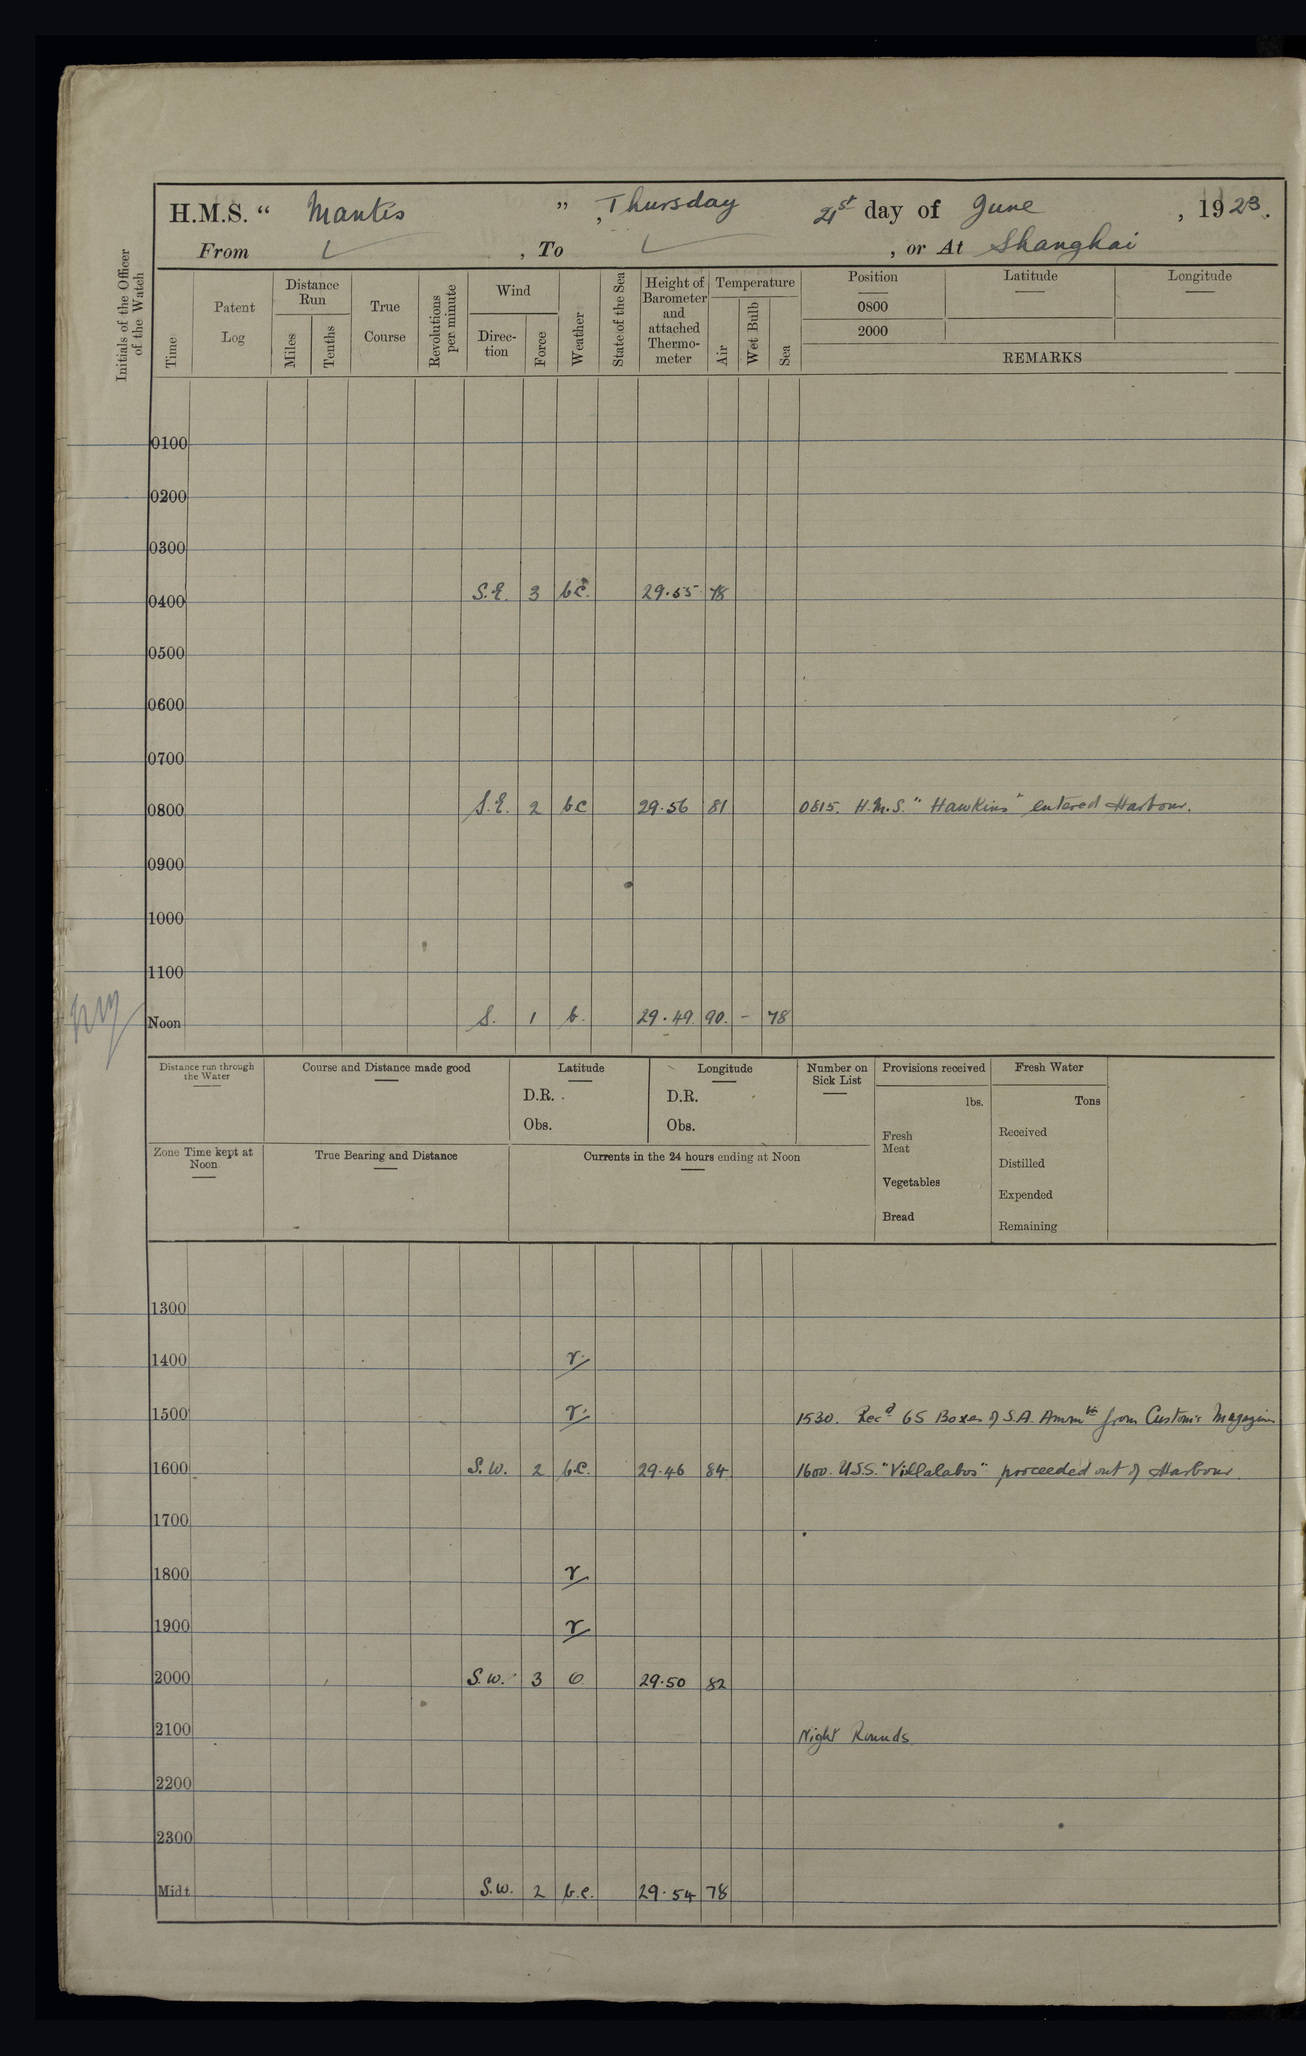 H.M.S. “ Mantis ” , Thursday 21st day of June , 1923.
From ✓ , To ✓ , or At Shanghai
Initials of the Officer of the Watch
Time
Patent Log
Distance Run
Miles
Tenths
True Course
Revolutions per minute
Wind
Direc-tion
Force
Weather
State of the Sea
Height of Barometer and attached Thermo-meter
Temperature
Air
Wet Bulb
Sea
Position
Latitude
Longitude
0800
2000
REMARKS
0100
0200
0300
0400 S.E. 3 bc. 29.55 78
0500
0600
0700
0800 S.E. 2 bc 29.56 81 0815. H.M.S. "Hawkins" entered Harbour.
0900
1000
1100
Noon S. 1 b. 29.49 90. - 78
Distance run through the Water
Course and Distance made good
Latitude
D.R.
Obs.
Longitude
D.R.
Obs.
Number on Sick List
Provisions received
lbs.
Fresh Meat
Vegetables
Bread
Fresh Water
Tons
Received
Distilled
Expended
Remaining
Zone Time kept at Noon
True Bearing and Distance
Currents in the 24 hours ending at Noon
1300
1400 r
1500 r 1530. Recd 65 Boxes of S.A. Ammtn from Customs Magazine
1600 S.W. 2 b.c. 29.46 84 1600. U.S.S. "Villalabos" proceeded out of Harbour.
1700
1800 r
1900 r
2000 S.W. 3 o 29.50 82
2100 Night Rounds
2200
2300
Midt S.W. 2 b.c. 29.54 78